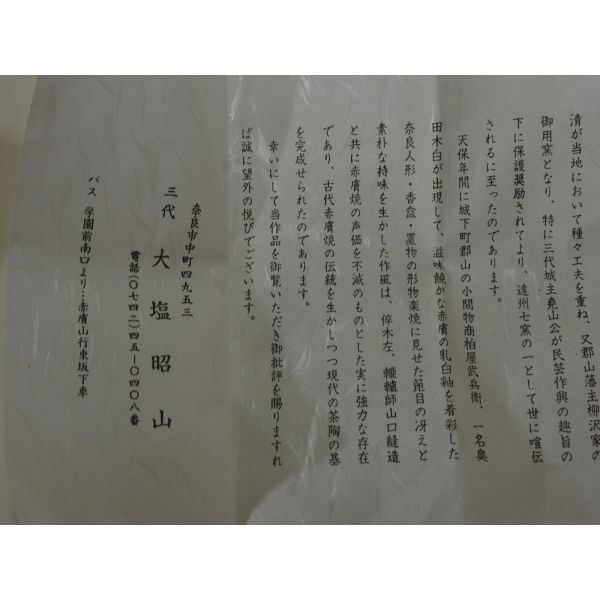 清が当地において種々工夫を重ね、又郡山藩主柳沢家の
御用窯となり、特に三代城主堯山公が民芸作興の趣旨の
下に保護奨励されてより、遠州七窯の一として世に喧伝
されるに至ったのであります。
天保年間に城下町郡山の小間物商柏屋武兵衛、一名奥
田木白が出現して、滋味饒かな赤膚の乳白釉を着彩した
奈良人形・香盒・置物の形物楽焼に見せた箆目の冴えと
素朴な持味を生かした作風は、倅木左、轆轤師山口縫造
と共に赤膚焼の声価を不滅のものとした実に強力な存在
であり、古代赤膚焼の伝統を生かしつつ現代の茶陶の基
を完成せられたのであります。
幸いにして当作品を御覧いただき御批評を賜りますれ
ば誠に望外の悦びでございます。
奈良市中町四九五三
三代 大塩昭山
電話(〇七四二)四五―〇四〇八番
バス 学園前南口より…赤膚山行東坂下車